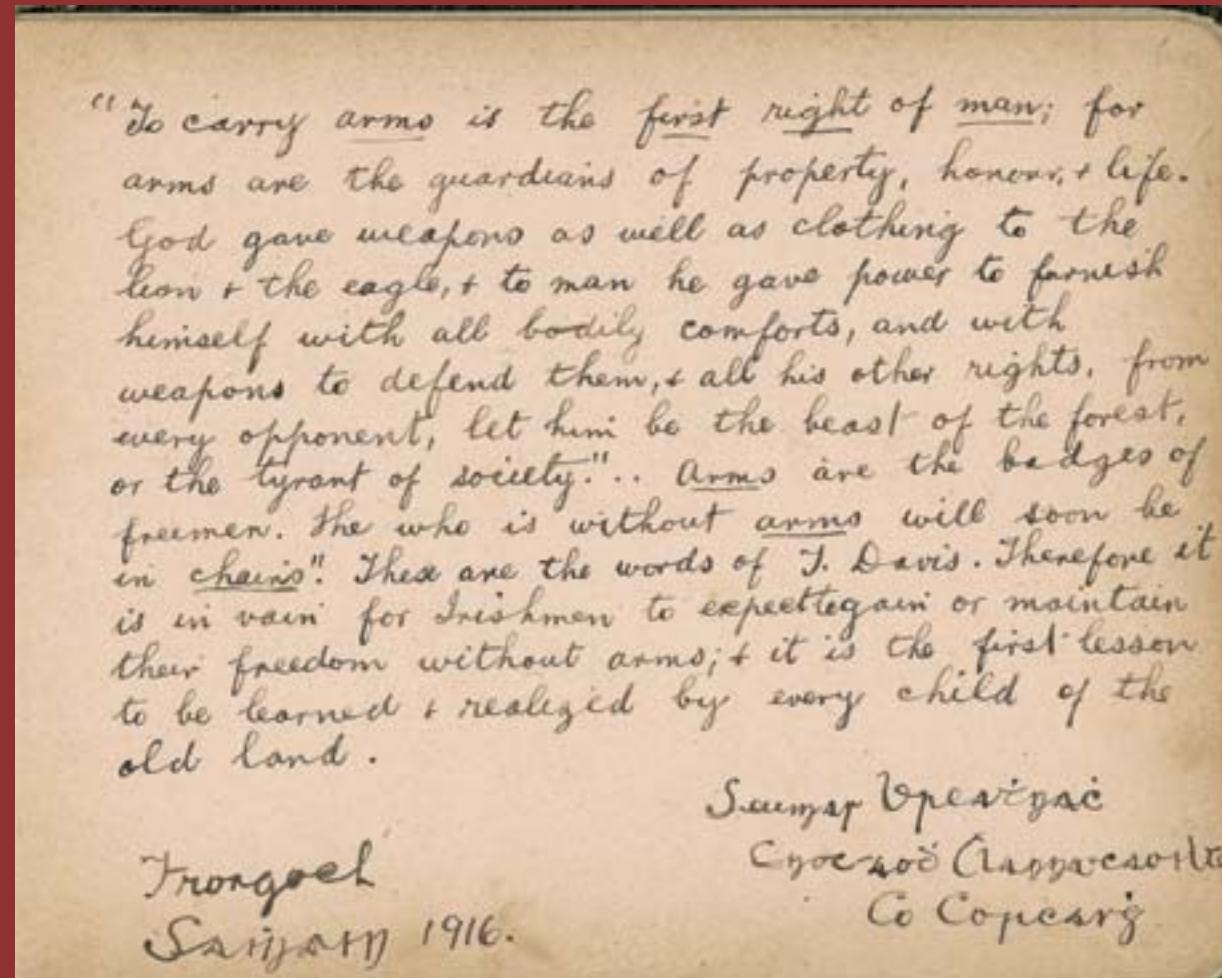 "To carry arms is the first right of man; for
arms are the guardians of property, honour, + life.
God gave weapons as well as clothing to the
lion + the eagle, + to man he gave power to furnish
himself with all bodily comforts, and with
weapons to defend them, + all his other rights, from
every opponent, let him be the beast of the forest,
or the tyrant of society." .. Arms are the badges of
freemen. He who is without arms will soon be
in chains". These are the words of T. Davis. Therefore it
is in vain for Irishmen to expect to gain or maintain
their freedom without arms; + it is the first lesson
to be learned + realized by every child of the
old land.
Seumas Breaṫnaċ
Cnoc
Co Corcaiġ
Frongoch
Saṁain 1916.